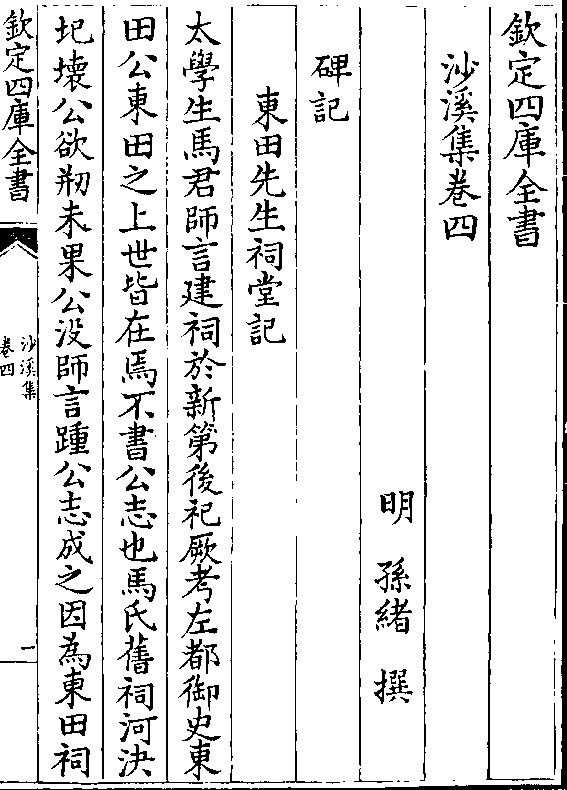 欽定四庫全書
沙溪集卷四
明 孫緒 撰
碑記
東田先生祠堂記
太學生馬君師言建祠於新第後祀厥考左都御史東
田公東田之上世皆在焉不書公志也馬氏舊祠河決
圮壞公欲剏未果公沒師言踵公志成之因為東田祠
欽定四庫全書
沙溪集
卷四
一